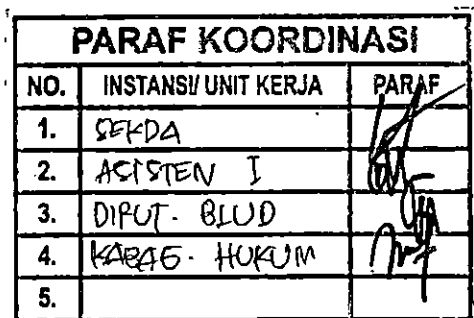 PARAF KOORDINASI
NO. INSTANSI/ UNIT KERJA PARAF
1. SEKDA
2. ASISTEN I
3. DIRUT. BLUD
4. KABAG. HUKUM
5.